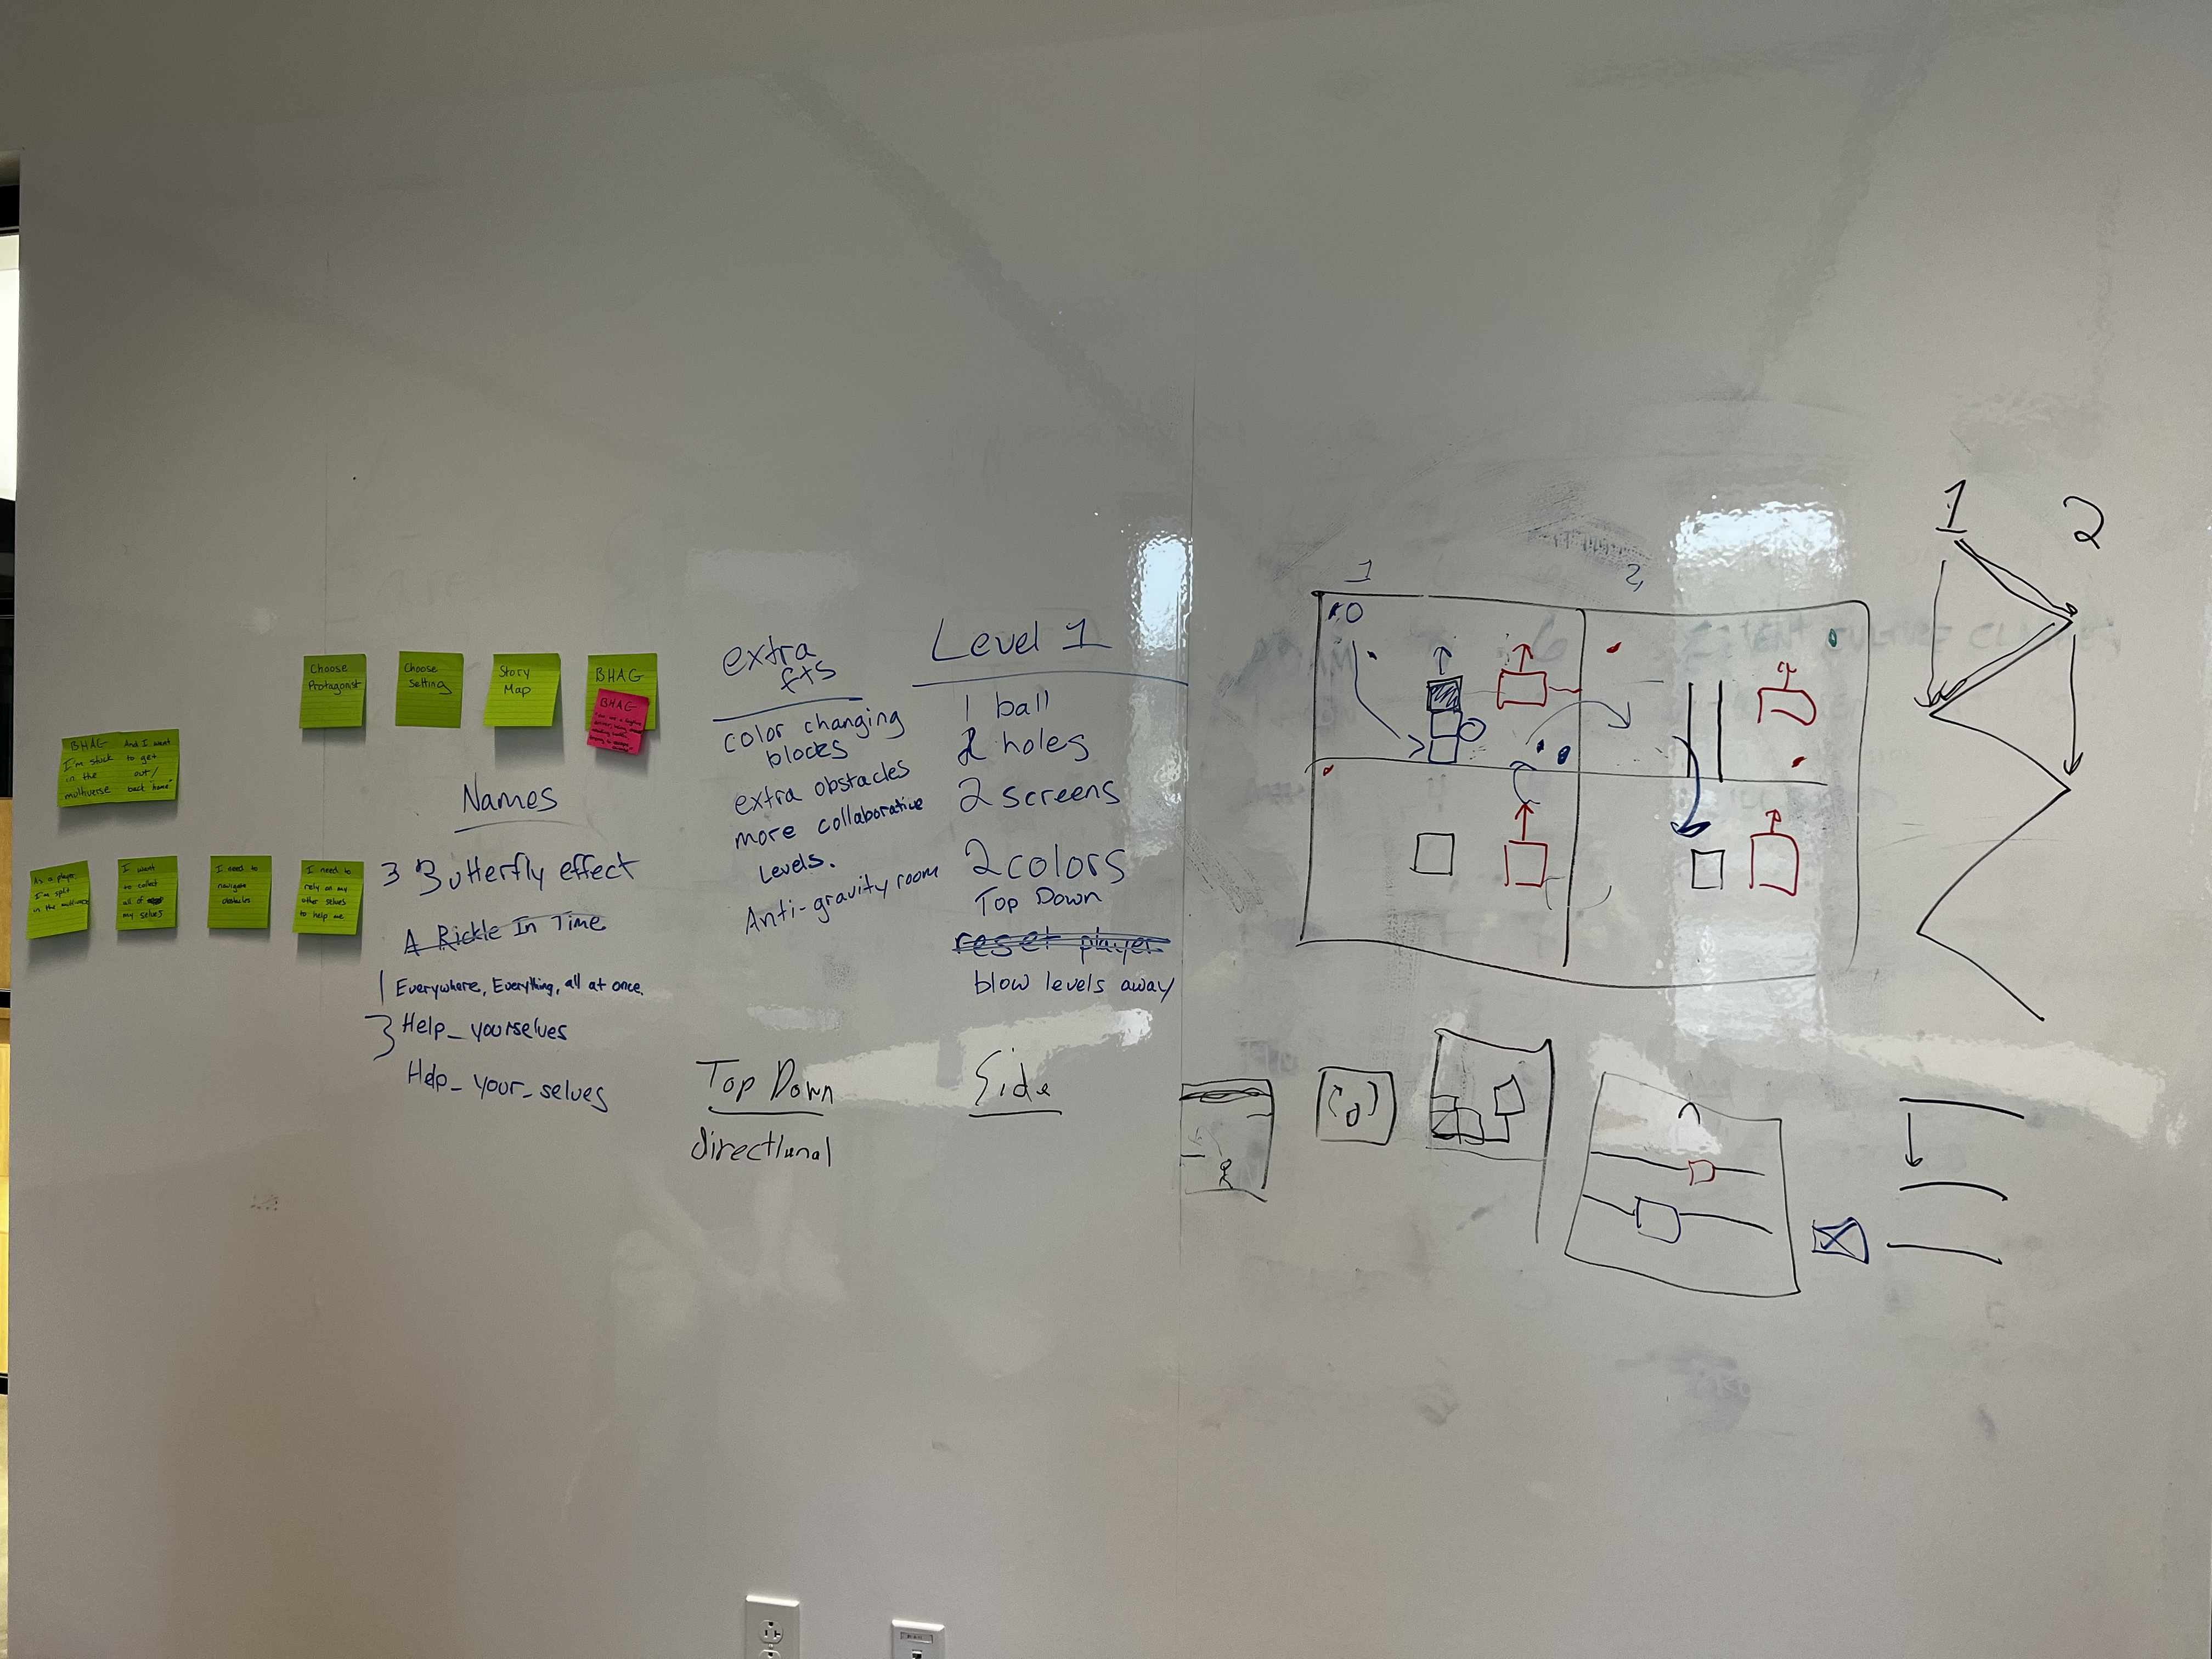 Choose
Protagonist
Choose
Setting
Story
Map
BHAG
BHAG
BHAG And I want
I'm stuck to get
in the out/
multiverse back "home"
As a player,
I'm split
in the multiverse
I want
to collect
all of
my selves
I need to
navigate
obstacles
I need to
rely on my
other selves
to help me
Names
3 Butterfly effect
A Rickle In Time
1 Everywhere, Everything, all at once.
3 Help_yourselves
Help_your_selves
extra
fts
color changing
blocks
extra obstacles
more collaborative
levels.
Anti-gravity room
Level 1
1 ball
2 holes
2 screens
2 colors
Top Down
reset player
blow levels away
Top Down
directional
Side
1 2
1 2